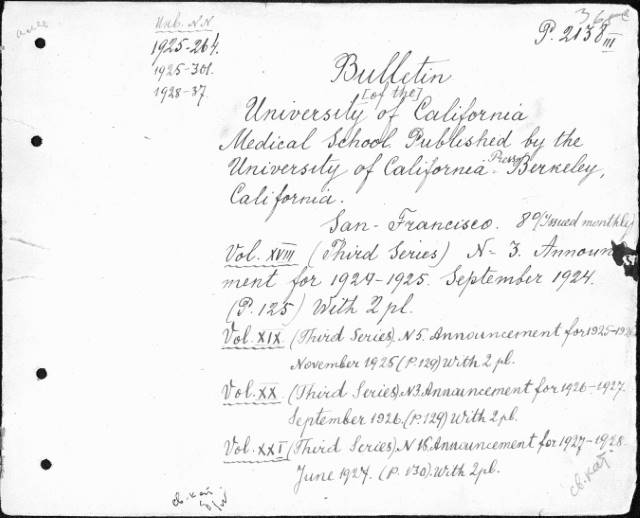 Инв. NN
1925-264.
1925-301.
1928-37.
P. 2138 III
Bulletin
[of the]
University of California
Medical School. Published by the
University of California Press Berkeley,
California.
San-Francisco. 8° (Issued monthly)
Vol. XVIII (Third Series) N- 3. Announ
ment for 1924-1925. September 1924.
(P. 125) With 2 pl.
Vol. XIX (Third Series). N 5. Announcement for 1925-1926
November 1925 (P. 129) With 2 pl.
Vol. XX (Third Series). N 3. Announcement for 1926-1927.
September 1926. (P. 129) With 2 pl.
Vol. XXI (Third Series). N 16. Announcement for 1927-1928.
June 1927. (P. 130). With 2 pl.
св. кат.
св. кат.